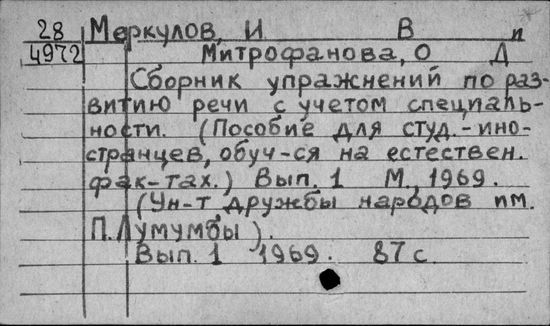 28 Меркулов, И В и
4972 Митрофанова, О Д
Сборник упражнений по раз-
витию речи с учетом специаль-
ности. (Пособие для студ.-ино-
странцев, обуч-ся на естествен.
фак-тах.) Вып. 1 М., 1969.
(Ун-т дружбы народов им.
П. Лумумбы).
Вып. 1 1969. 87 с.